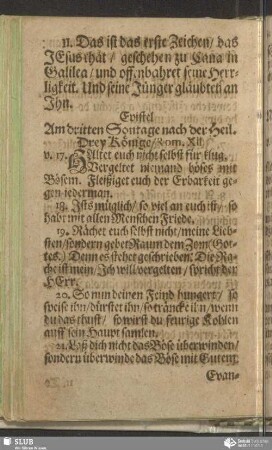 11. Das ist das erste Zeichen/ das
JEsus thät/ geschehen zu Cana in
Galilea/ und offenbahret seine Herr-
ligkeit. Und seine Jünger gläubten an
Ihn.
Epistel
Am dritten Sontage nach der Heil.
Drey Könige/ Rom. XII.
v. 17. HAltet euch nicht selbst für klug.
Vergeltet niemand böses mit
Bösem. Fleißiget euch der Erbarkeit ge-
gen iederman.
18. Ists müglich/ so viel an euch ist/ so
habt mit allen Menschen Friede.
19. Rächet euch selbst nicht/ meine Lieb-
sten/ sondern gebet Raum dem Zorn (Got-
tes.) Denn es stehet geschrieben: Die Ra-
che ist mein/ Ich will vergelten/ spricht der
HErr.
20. So nun deinen Feind hungert/ so
speise ihn/ dürstet ihn/ so träncke ihn/ wenn
du das thust/ so wirst du feurige Kohlen
auff sein Haupt samlen.
21. Laß dich nicht das Böse überwinden/
sondern überwinde das Böse mit Gutem.
Evan-
SLUB
Wir führen Wissen.